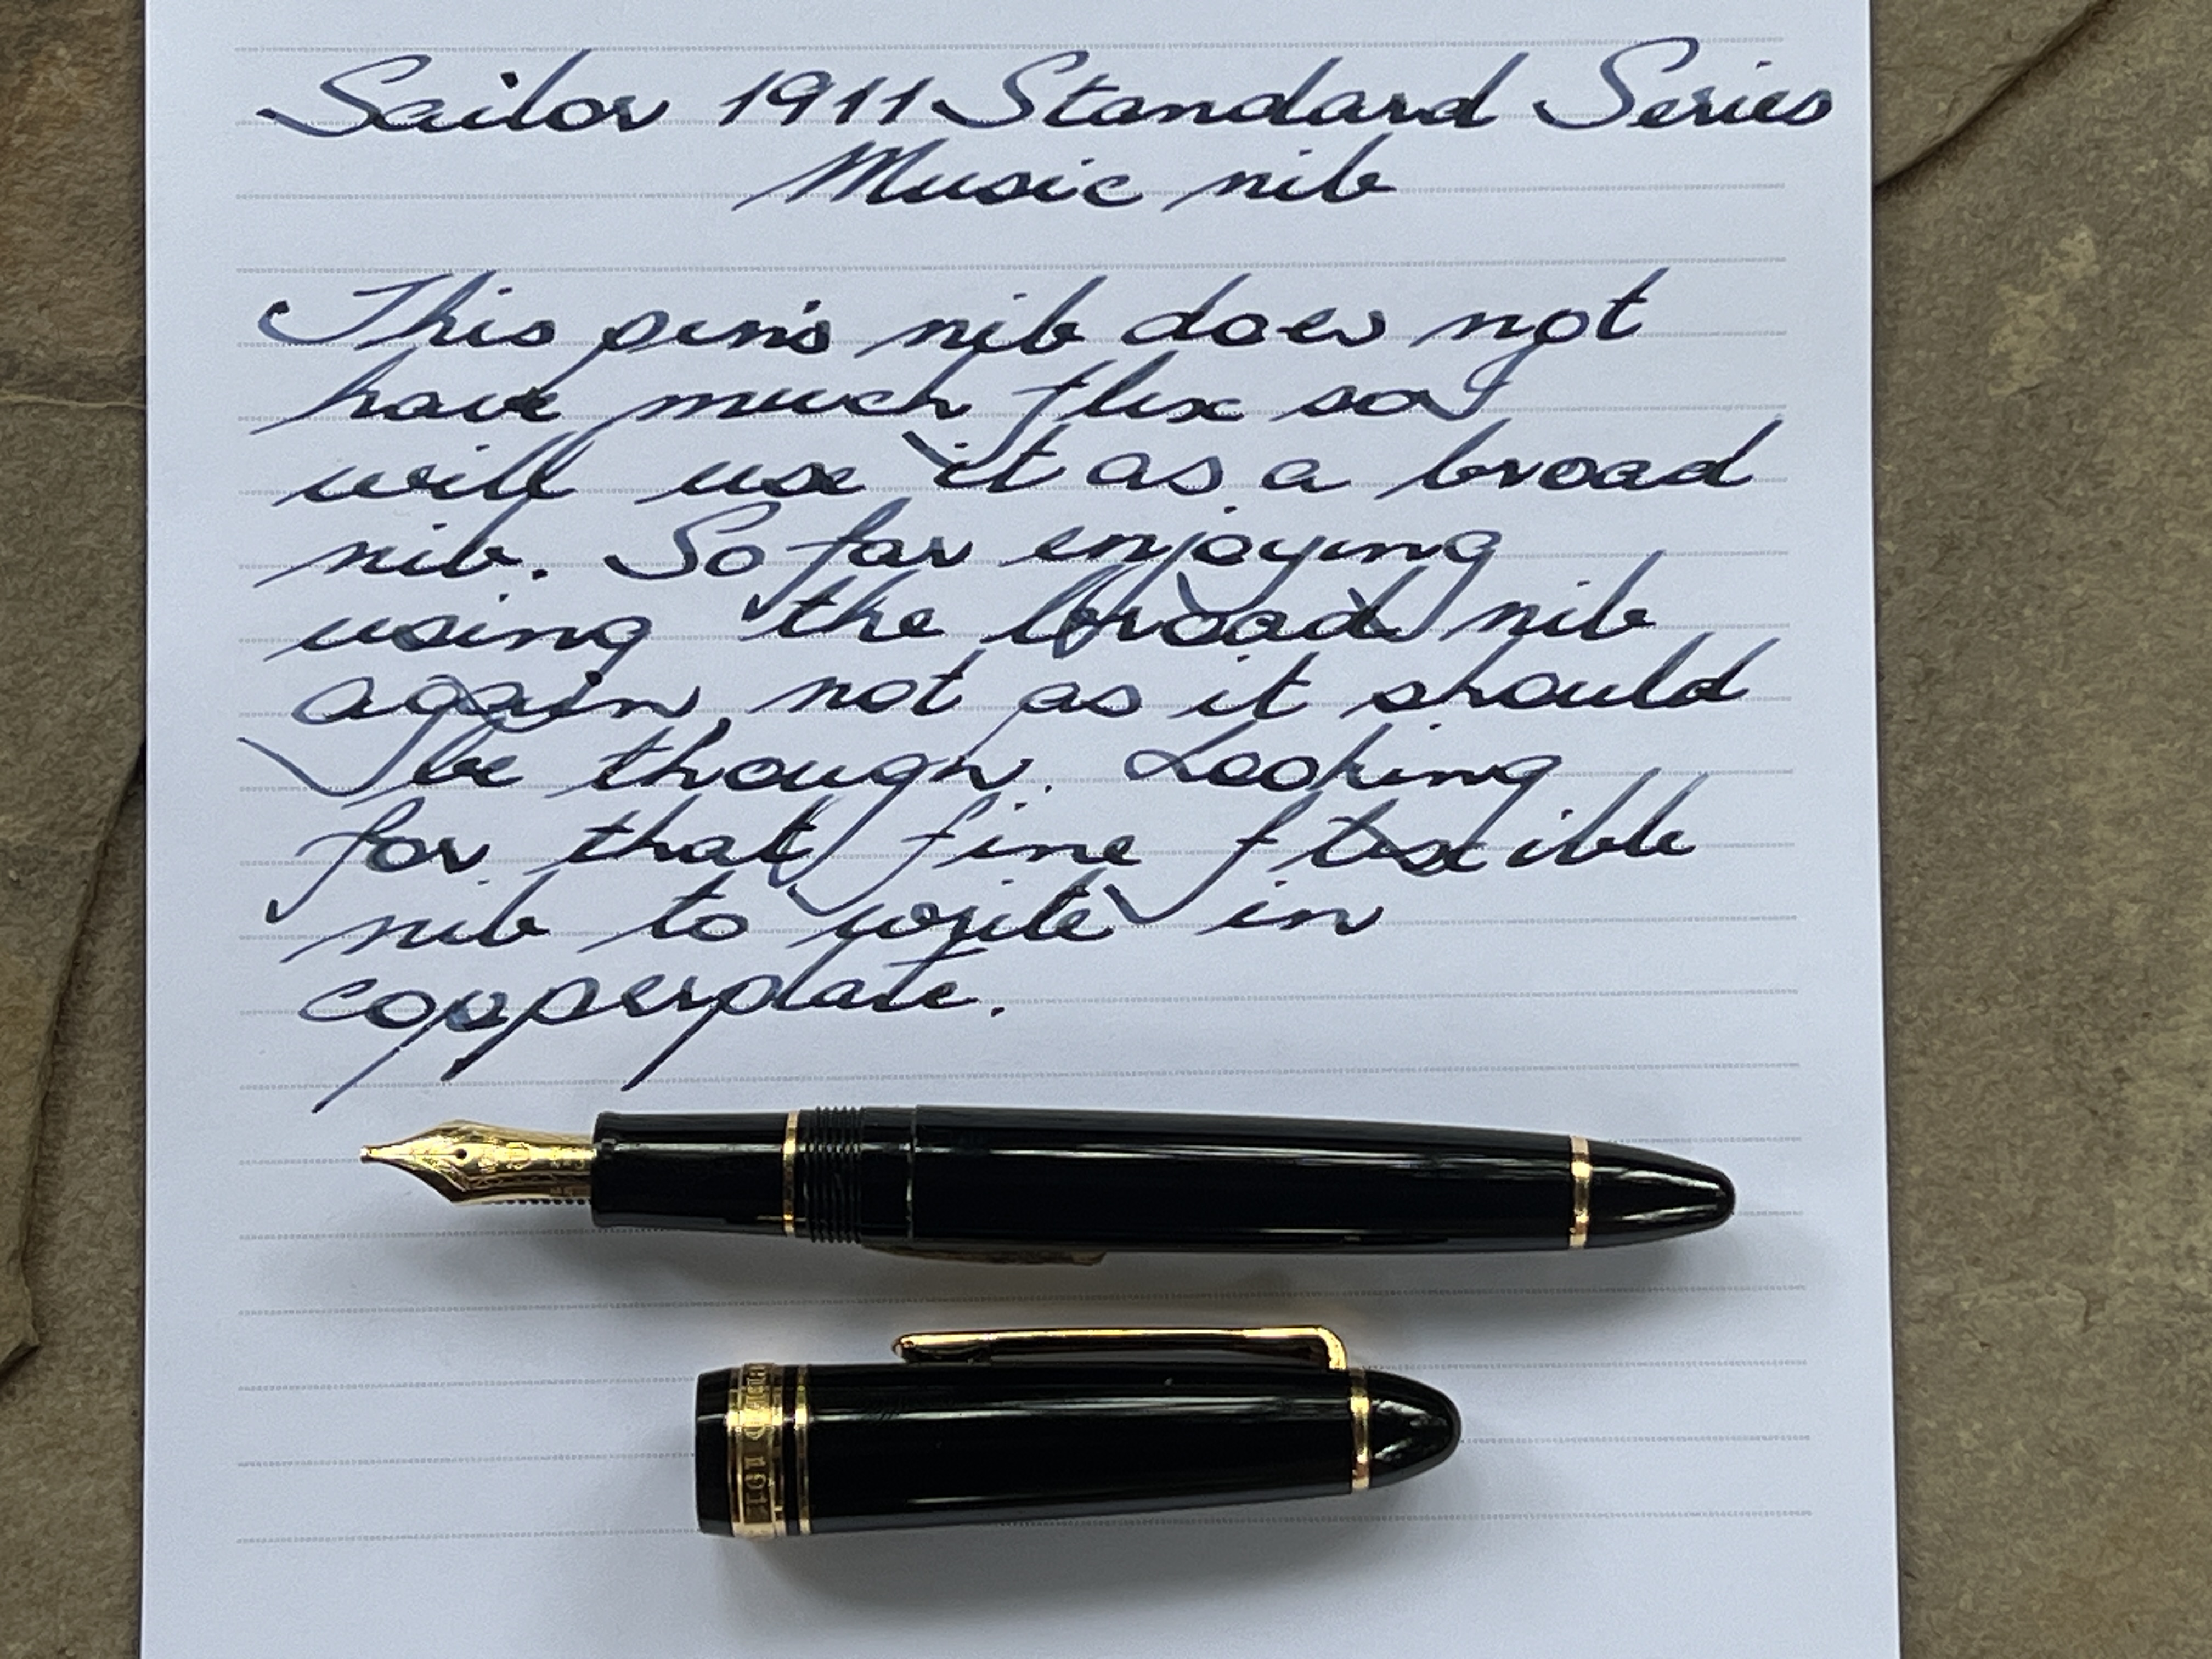 Sailor 1911 Standard Series
Music nib
This pen's nib does not
have much flex so I
will use it as a broad
nib. So far enjoying
using the broad nib
again, not as it should
be though. Looking
for that fine flexible
nib to write in
copperplate.
1911